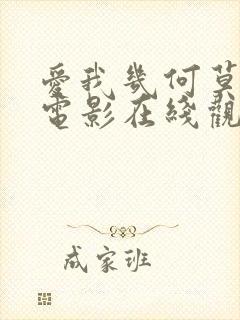 愛我幾何莫
電影在綫觀
成家班